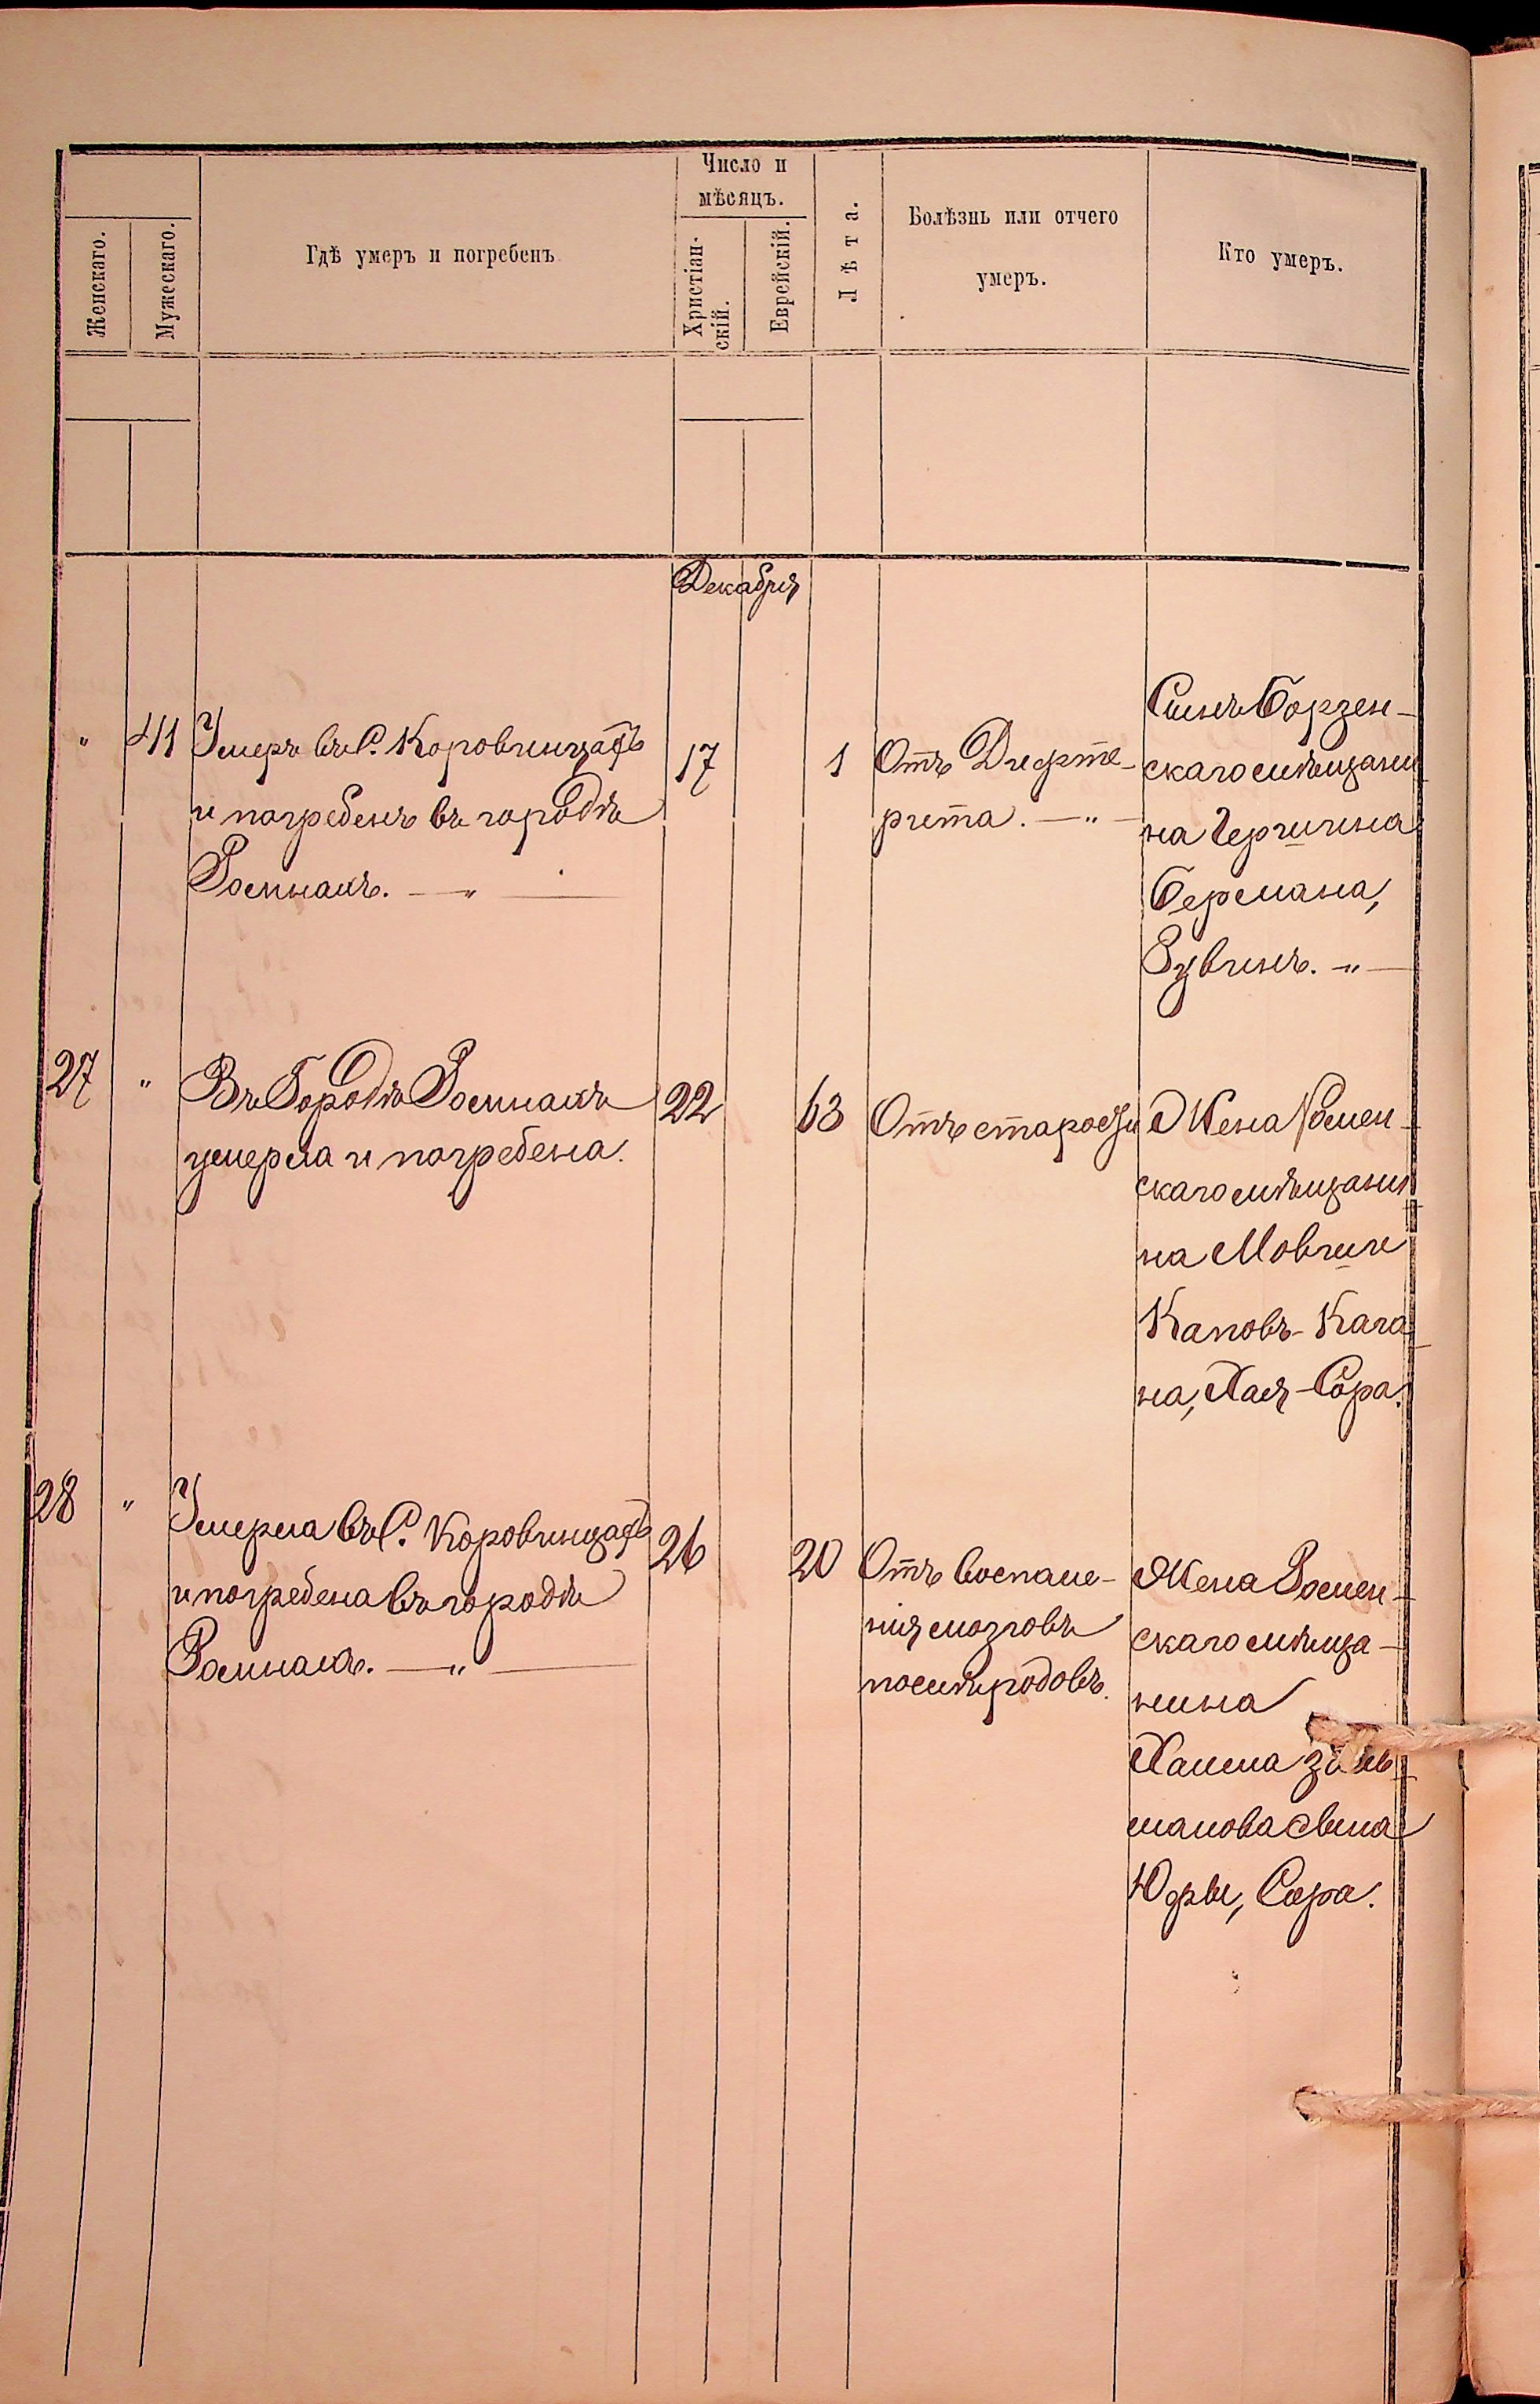 Женскаго.
Мужескаго.
Гдѣ умеръ и погребенъ
Число и
мѣсяцъ.
Христіан-
скій.
Еврейскій.
Лѣта.
Болѣзнь или отчего
умеръ.
Кто умеръ.
Декабря
" 41
Умеръ въ С. Коровинцахъ
и погребенъ въ городѣ
Ромнахъ. — " —
17
1
Отъ Дифте-
рита. — " —
Сынъ Борзен-
скаго мѣщани
на Гершина
Бермана,
Рувинъ. " —
27 "
Въ Городѣ Ромнахъ
умерла и погребена.
22
63
Отъ старости
Жена Ромен-
скаго мѣщани
на Мовши
Каповъ-Кага
на, Хая-Сора.
28 "
Умерла въ С. Коровинцахъ
и погребена въ городѣ
Ромнахъ. — " —
26
20
Отъ воспале-
нія мозговъ
послѣ родовъ.
Жена Ромен-
скаго мѣща-
нина
Хаима
манова сына
Юдры, Сора.